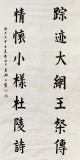 踪迹大綱王粲傳
情懷小樣杜陵詩